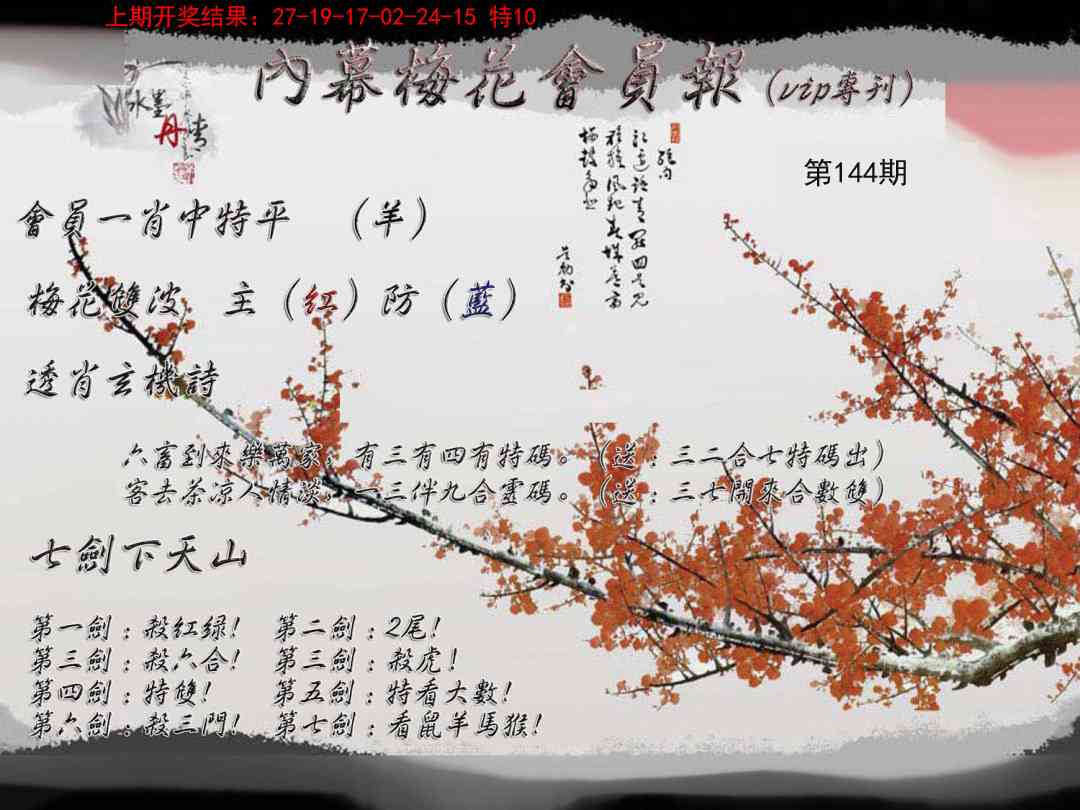 上期开奖结果：27-19-17-02-24-15 特10
內幕梅花會員報（vip專刊）
水墨
丹青
第144期
會員一肖中特平 （羊）
梅花雙波 主（红）防（藍）
透肖玄機詩
六畜到來樂萬家；有三有四有特碼。（送：三二合七特碼出）
客去茶凉人情淡；一三伴九合靈碼。（送：三七開來合數雙）
七劍下天山
第一劍：殺红绿！ 第二劍：2尾！
第三劍：殺六合！ 第三劍：殺虎！
第四劍：特雙！ 第五劍：特看大數！
第六劍：殺三門！ 第七劍：看鼠羊馬猴！